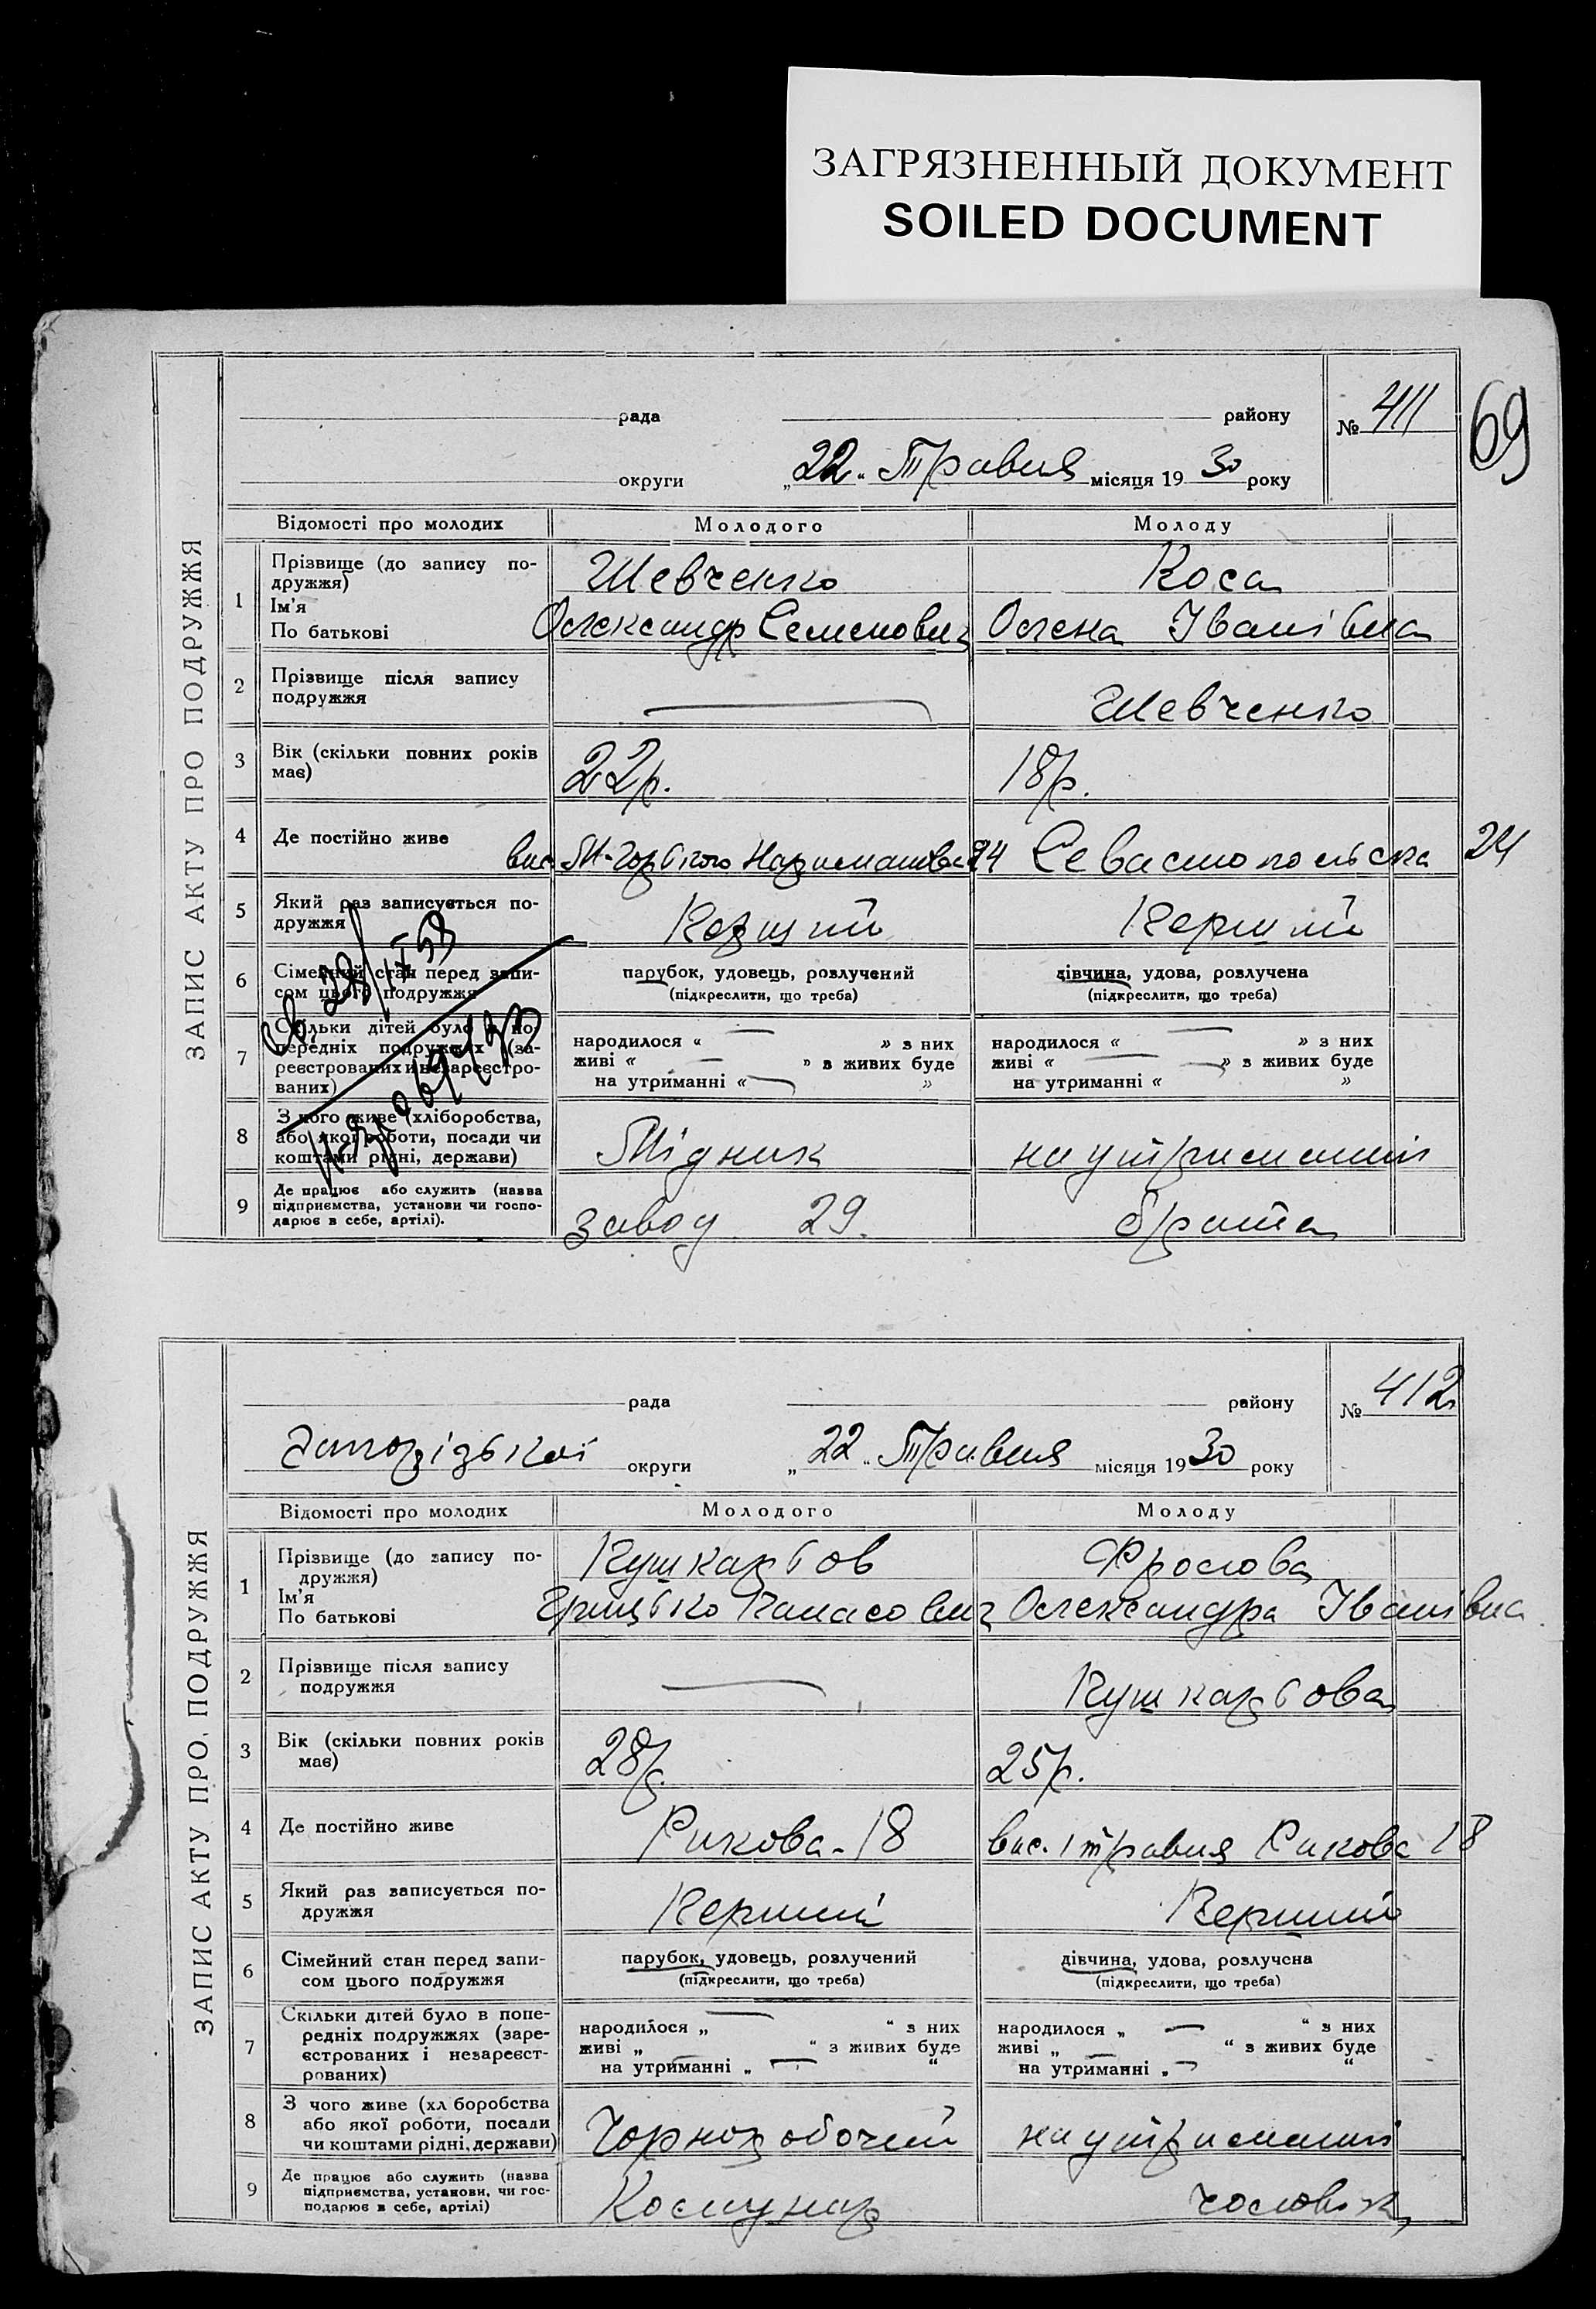 ЗАГРЯЗНЕННЫЙ ДОКУМЕНТ
SOILED DOCUMENT
69
ЗАПИС АКТУ ПРО ПОДРУЖЖЯ
рада району № 411
округи „22“ Травня місяця 1930 року
Відомості про молодих Молодого Молоду
1 Прізвище (до запису по-
дружжя) Шевченко Коса
Ім'я
По батькові Олександр Семенович Олена Іванівна
2 Прізвище після запису
подружжя — Шевченко
3 Вік (скільки повних років
має) 22р. 18р.
4 Де постійно живе вис. М-Горького Нариманова 24 Севастопольська 24
5 Який раз записується по-
дружжя Перший Перший
6 Сімейний стан перед запи- парубок, удовець, розлучений дівчина, удова, розлучена
сом цього подружжя (підкреслити, що треба) (підкреслити, що треба)
7 Скільки дітей було в по- народилося « — » з них народилося « — » з них
передніх подружжях (за- живі « — » в живих буде живі « — » в живих буде
реєстрованих и незареєстро- на утриманні « — » на утриманні « »
ваних)
8 З чого живе (хліборобства,
або якої роботи, посади чи
коштами рідні, держави) Мідник на утриманні
9 Де працює або служить (назва
підприємства, установи чи госпо-
дарює в себе, артілі). завод 29. брата
28/IX 53
ЗАПИС АКТУ ПРО ПОДРУЖЖЯ
рада району № 412
Запорізької округи „22“ Травня місяця 1930 року
Відомості про молодих Молодого Молоду
1 Прізвище (до запису по-
дружжя) Пушкарьов Фролова
Ім'я
По батькові Грицько Панасович Олександра Іванівна
2 Прізвище після запису
подружжя — Пушкарьова
3 Вік (скільки повних років
має) 28р. 25р.
4 Де постійно живе Рикова-18 вис. 1 травня Рикова 18
5 Який раз записується по-
дружжя Перший Перший
6 Сімейний стан перед запи- парубок, удовець, розлучений дівчина, удова, розлучена
сом цього подружжя (підкреслити, що треба) (підкреслити, що треба)
7 Скільки дітей було в попе- народилося „ — “ з них народилося „ — “ з них
редніх подружжях (заре- живі „ — “ з живих буде живі „ — “ з живих буде
єстрованих і незареєст- на утриманні „ — “ на утриманні „ — “
рованих)
8 З чого живе (хл боробства
або якої роботи, посади
чи коштами рідні, держави) Чорноробочий на утриманні
9 Де працює або служить (назва
підприємства, установи, чи гос-
подарює в себе, артілі) Комунар чоловіка